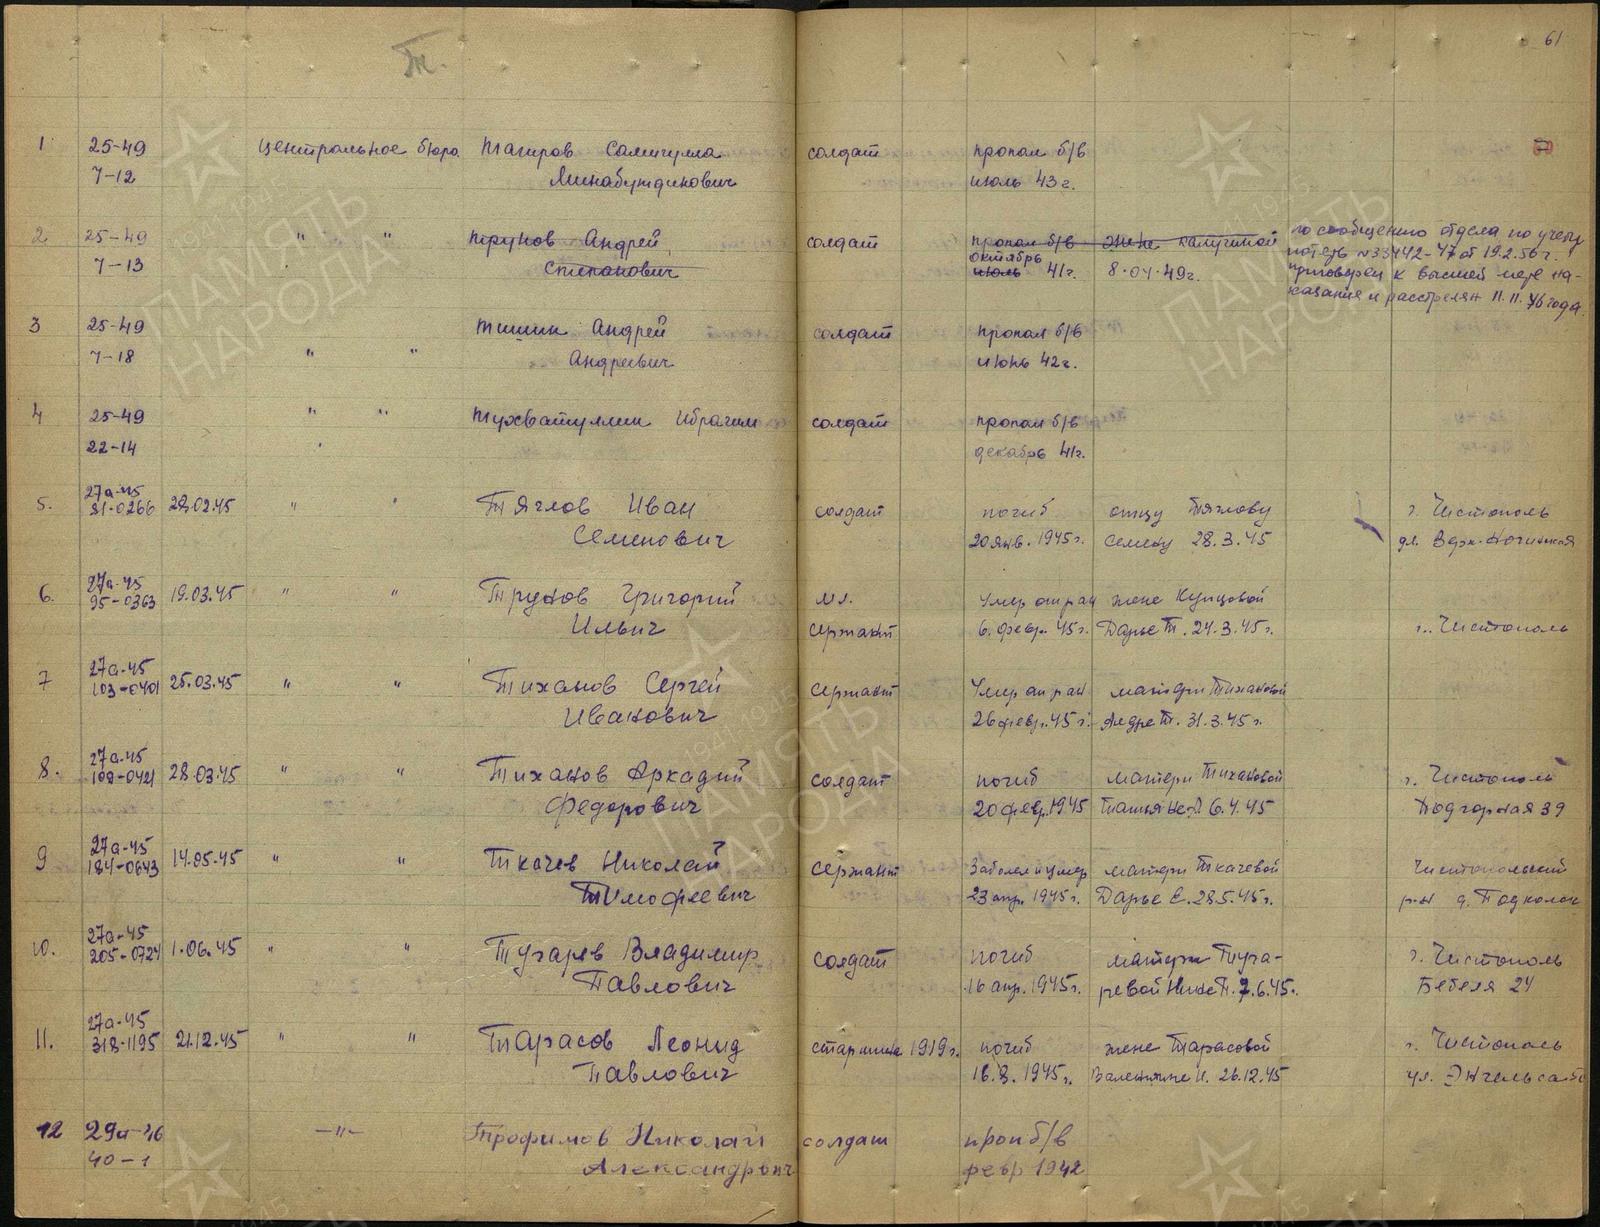 Т.
61
1 25-49 центральное бюро Тагиров Самигулла солдат пропал б/в
7-12 июль 43 г.
2 25-49 " " Трунов Андрей солдат пропал б/в жене Калугиной по сообщению отдела по учету
7-13 Степанович октябрь июль 41 г. 8.04.49 г. потерь №33442-47 от 19.2.56 г.
приговорен к высшей мере на-
казания и расстрелян 11.11.46 года.
3 25-49 Тишин Андрей солдат пропал б/в
7-18 " " Андреевич июнь 42 г.
4 25-49 " " Тухватуллин Ибрагим солдат пропал б/в
22-14 декабрь 41 г.
27а-45
5. 81-0266 28.02.45 " " Тяглов Иван солдат погиб отцу Тяглову г. Чистополь
Семенович 20 янв. 1945 г. Семену 28.3.45
27а-45
6. 95-0363 19.03.45 " " Трунов Григорий мл. Умер от ран жене Купцовой
Ильич сержант 6. февр. 45 г. Дарье Т. 24.3.45 г. г. Чистополь
27а-45
7 103-0401 25.03.45 " " Тиханов Сергей сержант Умер от ран матери Тихановой
Иванович 26 февр. 45 г. 31.3.45 г.
27а-45
8. 109-0421 28.03.45 " " Тиханов Аркадий солдат погиб матери Тихановой г. Чистополь
Федорович 20 февр. 1945 Татьяне 6.4.45 Подгорная 39
27а-45
9 184-0643 14.05.45 " " Ткачев Николай сержант Заболел и умер матери Ткачевой Чистопольский
Тимофеевич 23 апр. 1945 г. Дарье Е. 28.5.45 г. р-н д.
27а-45
10. 205-0724 1.06.45 " " Тугарев Владимир солдат погиб матери Туга- г. Чистополь
Павлович 16 апр. 1945 г. ревой Нине П. 7.6.45 г. Бебеля 24
27а-45
11. 318-1195 21.12.45 " " Тарасов Леонид старшина 1919 г. погиб жене Тарасовой г. Чистополь
Павлович 16.8.1945 г. Валентине И. 26.12.45 ул. Энгельса
12 29а-46 —"— Трофимов Николай солдат проп б/в
40-1 Александрович февр 1942
ПАМЯТЬ
НАРОДА
1941-1945